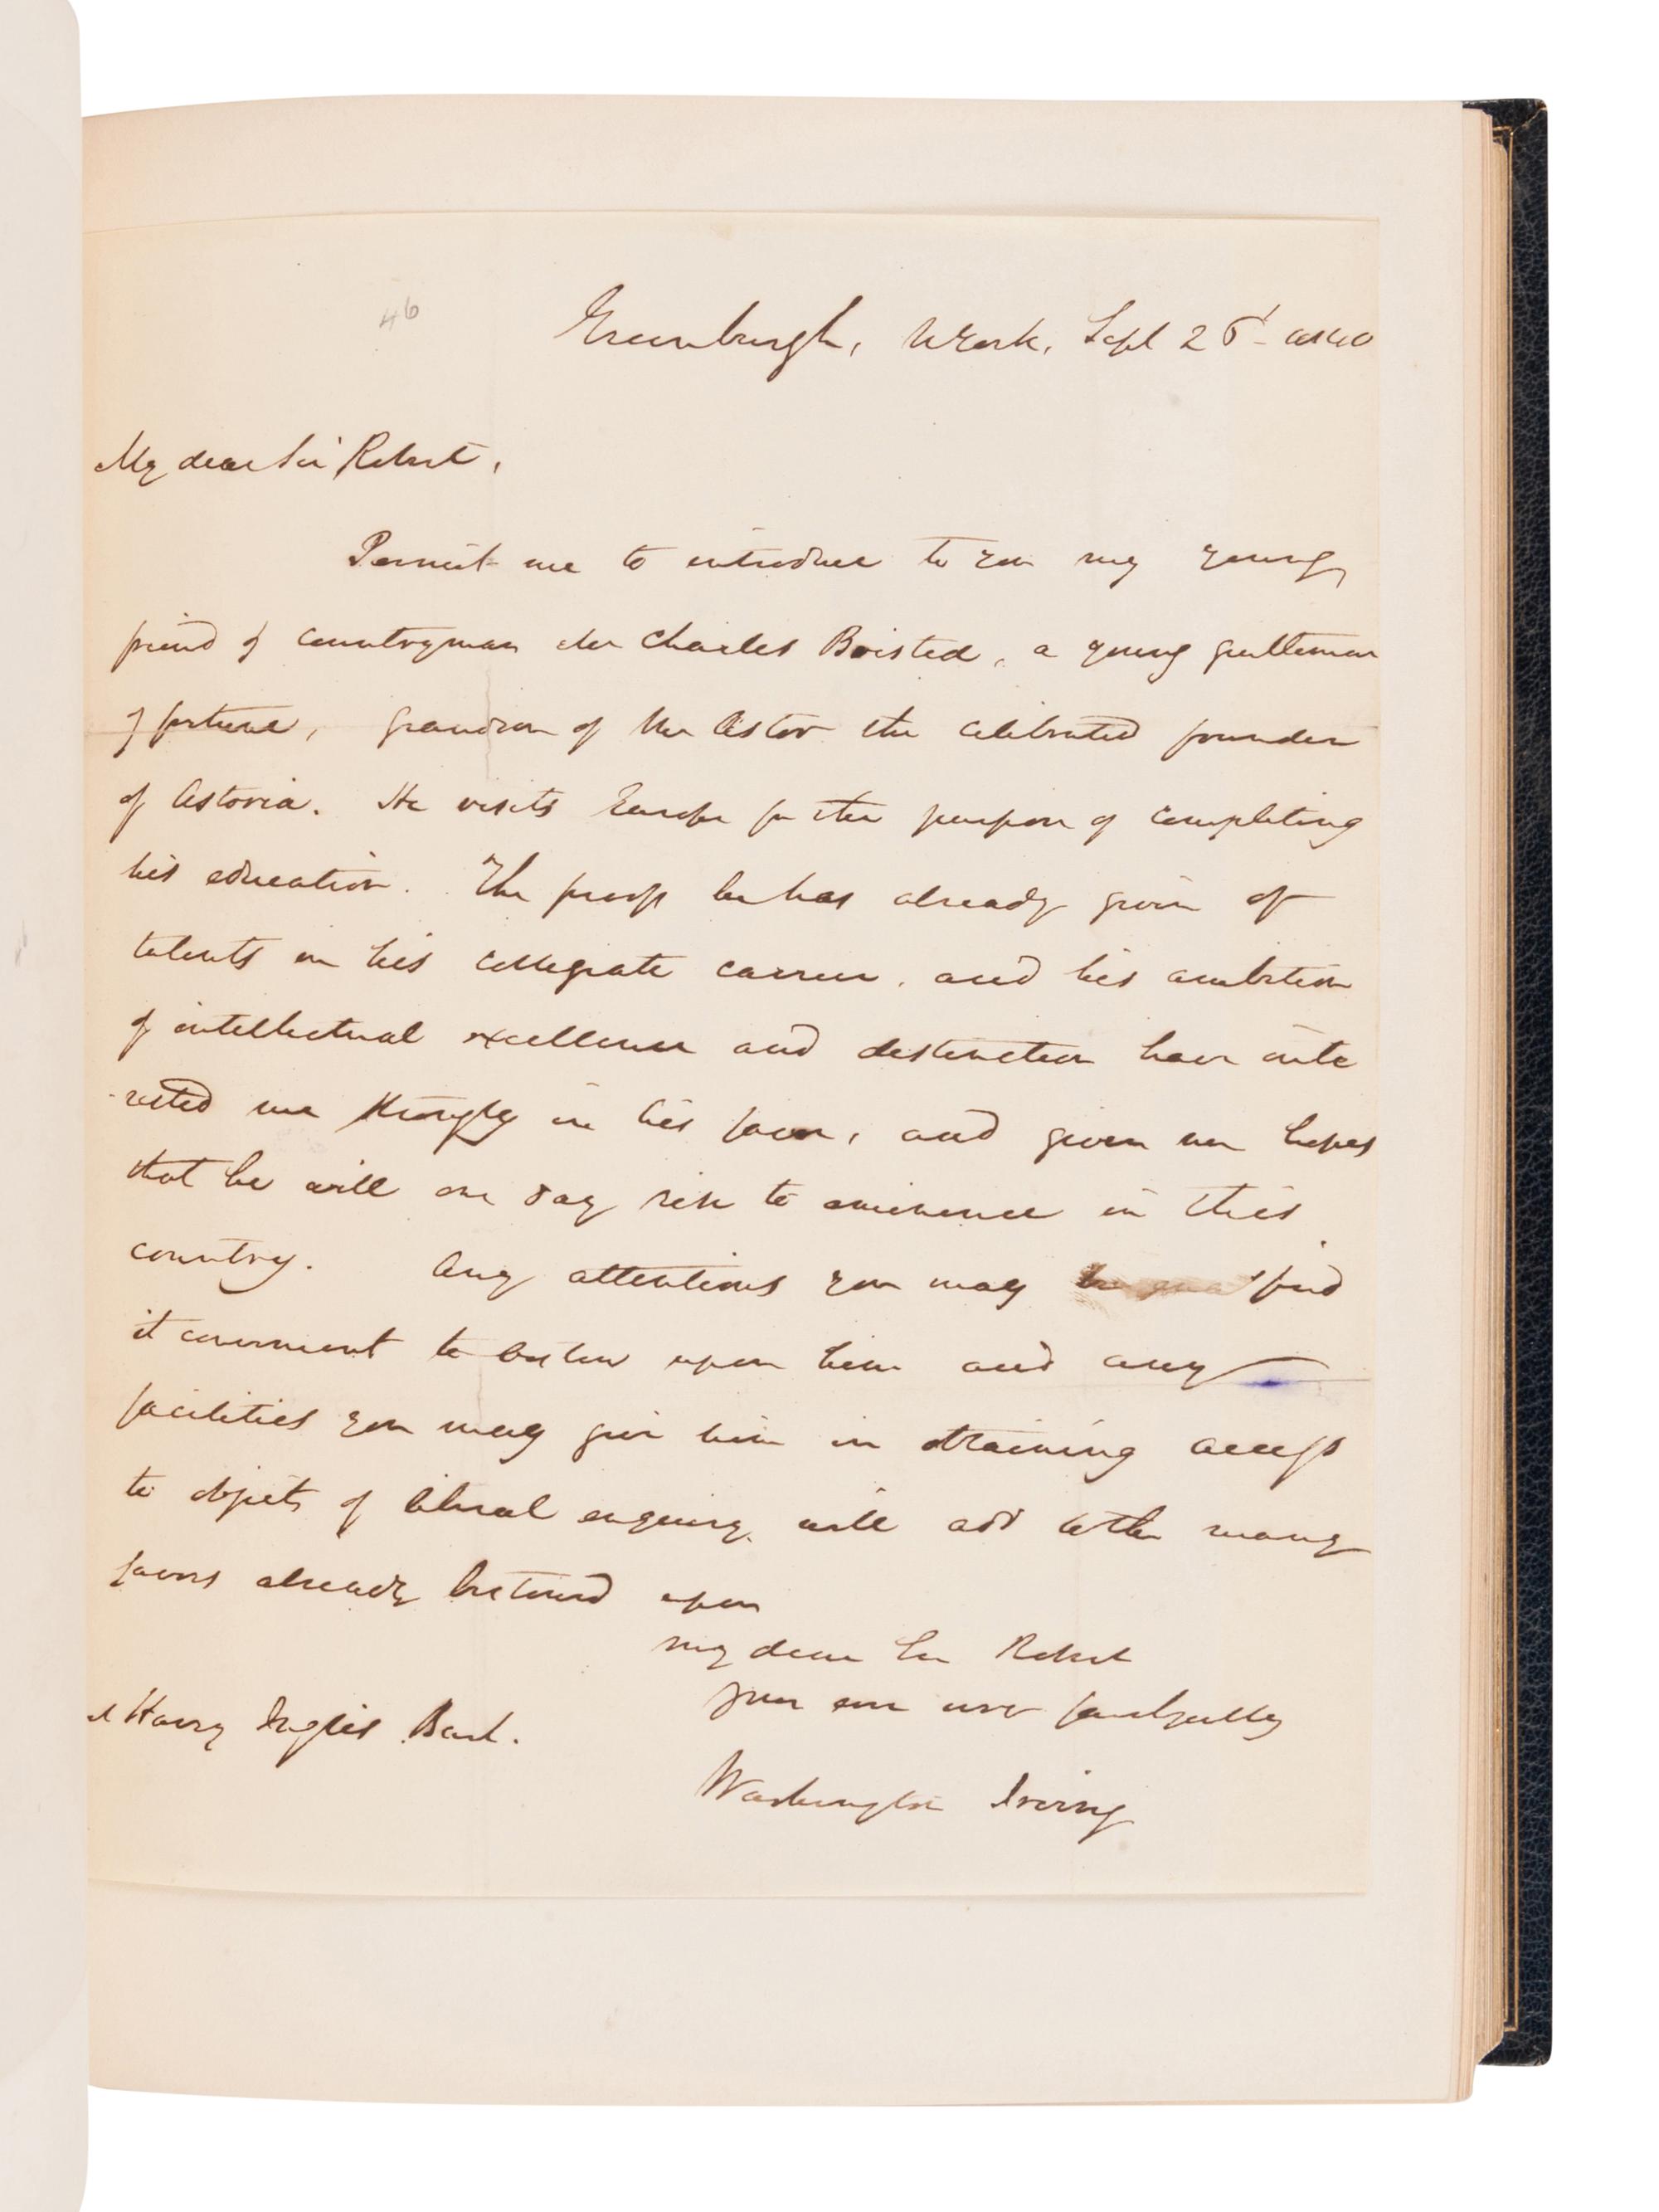 46
Greenburgh, N York, Sept 25 1840
My dear Sir Robert,
Permit me to introduce to you my young
friend & countryman Mr Charles Bristed, a young gentleman
of fortune, grandson of Mr Astor the celebrated founder
of Astoria. He visits Europe for the purpose of completing
his education. The proofs he has already given of
talents in his collegiate career, and his ambition
of intellectual excellence and distinction have inte
-rested me strongly in his favor, and given me hopes
that he will one day rise to eminence in this
country. Any attentions you may find
it convenient to bestow upon him and any
facilities you may give him in attaining access
to objects of liberal enquiry, will add to the many
favors already bestowed upon
my dear Sir Robert
yours ever very faithfully
Harry Inglis Bart.
Washington Irving